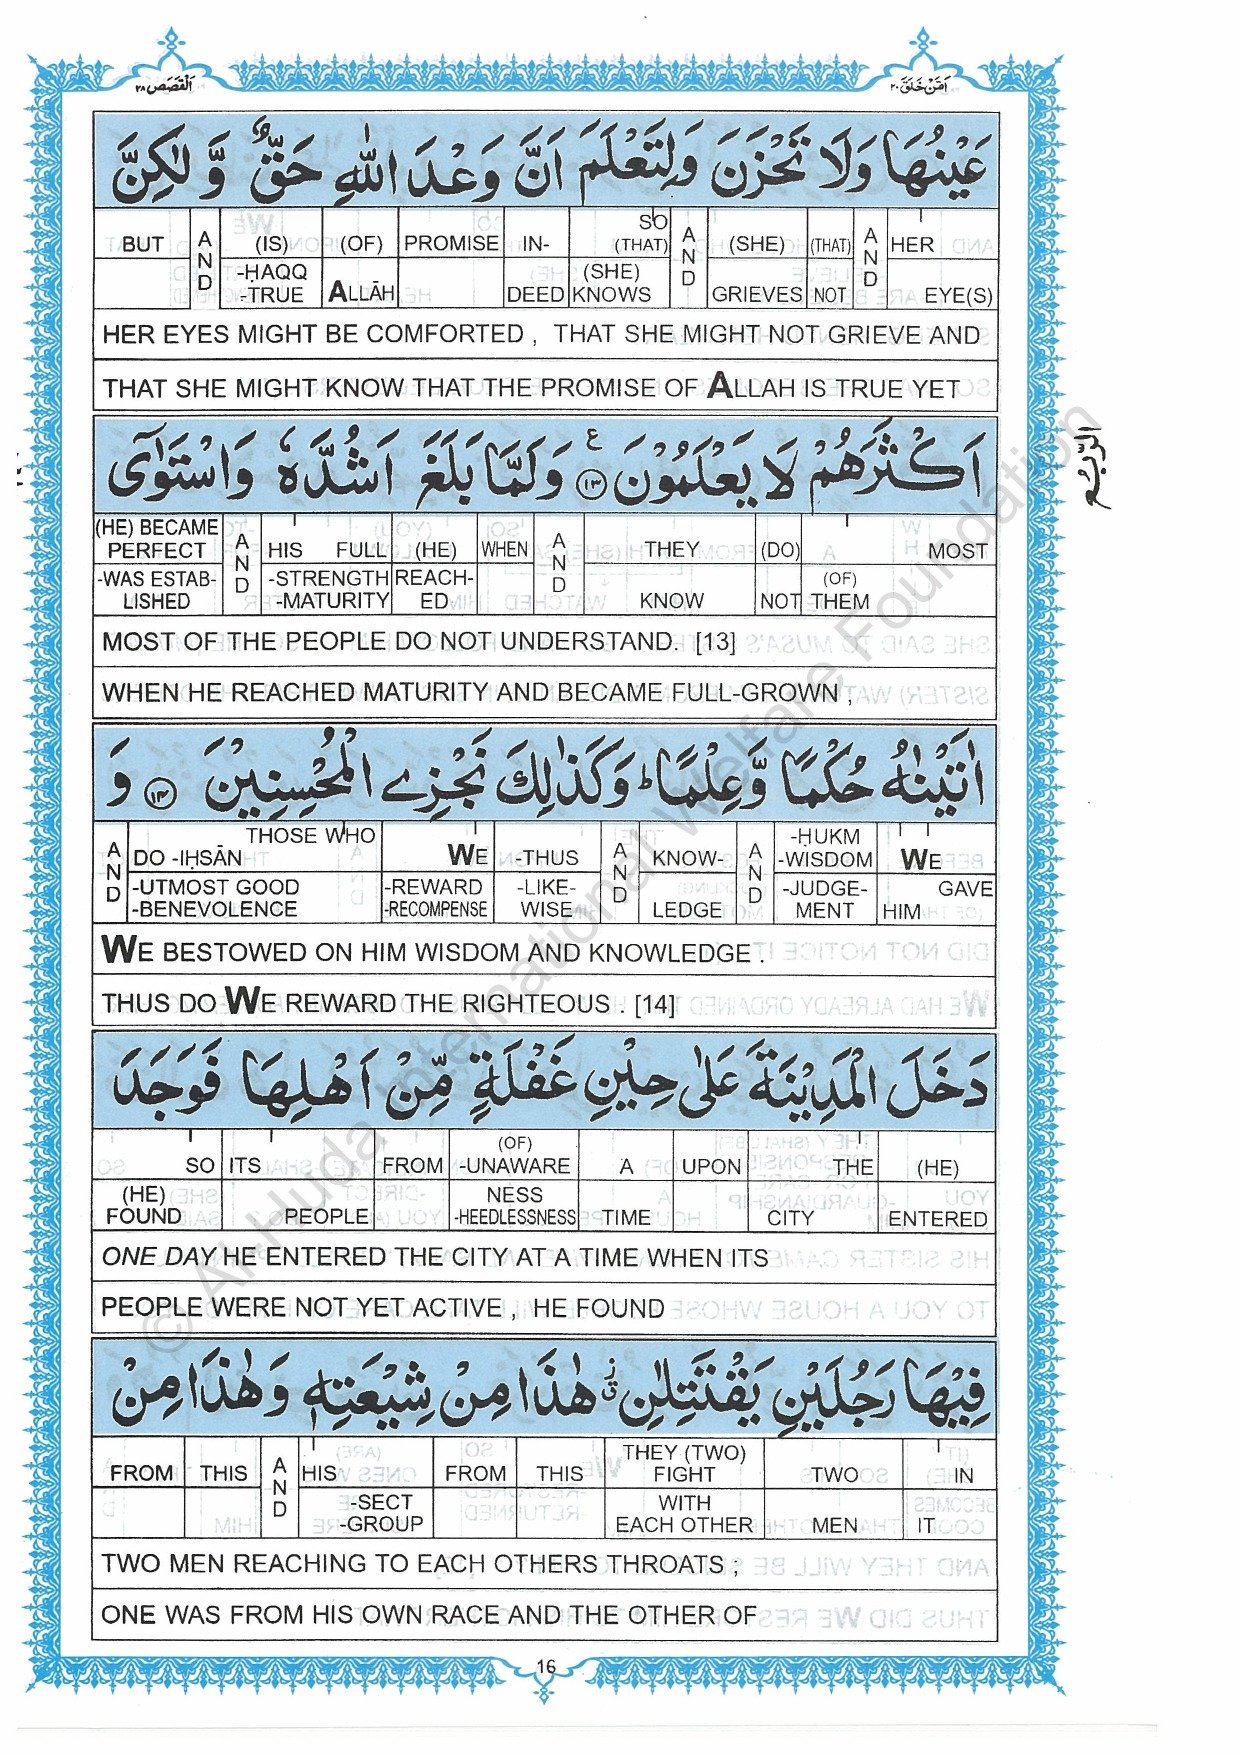 اَمَّنْ خَلَقَ ٢٠
اَلْقَصَص ٢٨
عَيْنُهَا وَلَا تَحْزَنَ وَلِتَعْلَمَ اَنَّ وَعْدَ اللّٰهِ حَقٌّ وَّلٰكِنَّ
BUT AND (IS) (OF) PROMISE IN- SO (THAT) AND (SHE) (THAT) AND HER
-ḤAQQ -TRUE ALLĀH DEED (SHE) KNOWS GRIEVES NOT EYE(S)
HER EYES MIGHT BE COMFORTED , THAT SHE MIGHT NOT GRIEVE AND
THAT SHE MIGHT KNOW THAT THE PROMISE OF ALLAH IS TRUE YET
اَكْثَرَهُمْ لَا يَعْلَمُوْنَ ع ١٣ وَلَمَّا بَلَغَ اَشُدَّهٗ وَاسْتَوٰٓى
الربع
(HE) BECAME PERFECT AND HIS FULL (HE) WHEN AND THEY (DO) MOST
-WAS ESTAB- LISHED -STRENGTH -MATURITY REACH- ED KNOW NOT (OF) THEM
MOST OF THE PEOPLE DO NOT UNDERSTAND. [13]
WHEN HE REACHED MATURITY AND BECAME FULL-GROWN ,
اٰتَيْنٰهُ حُكْمًا وَّعِلْمًا ؕ وَكَذٰلِكَ نَجْزِى الْمُحْسِنِيْنَ ١٤ وَ
AND THOSE WHO DO -IḤSĀN WE -THUS AND KNOW- AND -ḤUKM -WISDOM WE
-UTMOST GOOD -BENEVOLENCE -REWARD -RECOMPENSE -LIKE- WISE LEDGE -JUDGE- MENT GAVE HIM
WE BESTOWED ON HIM WISDOM AND KNOWLEDGE .
THUS DO WE REWARD THE RIGHTEOUS . [14]
دَخَلَ الْمَدِيْنَةَ عَلٰى حِيْنِ غَفْلَةٍ مِّنْ اَهْلِهَا فَوَجَدَ
SO ITS FROM (OF) -UNAWARE A UPON THE (HE)
(HE) FOUND PEOPLE NESS -HEEDLESSNESS TIME CITY ENTERED
ONE DAY HE ENTERED THE CITY AT A TIME WHEN ITS
PEOPLE WERE NOT YET ACTIVE , HE FOUND
فِيْهَا رَجُلَيْنِ يَقْتَتِلٰنِ هٰذَا مِنْ شِيْعَتِهٖ وَهٰذَا مِنْ
FROM THIS AND HIS FROM THIS THEY (TWO) FIGHT TWO IN
-SECT -GROUP WITH EACH OTHER MEN IT
TWO MEN REACHING TO EACH OTHERS THROATS ;
ONE WAS FROM HIS OWN RACE AND THE OTHER OF
16
© Al-Huda International Welfare Foundation